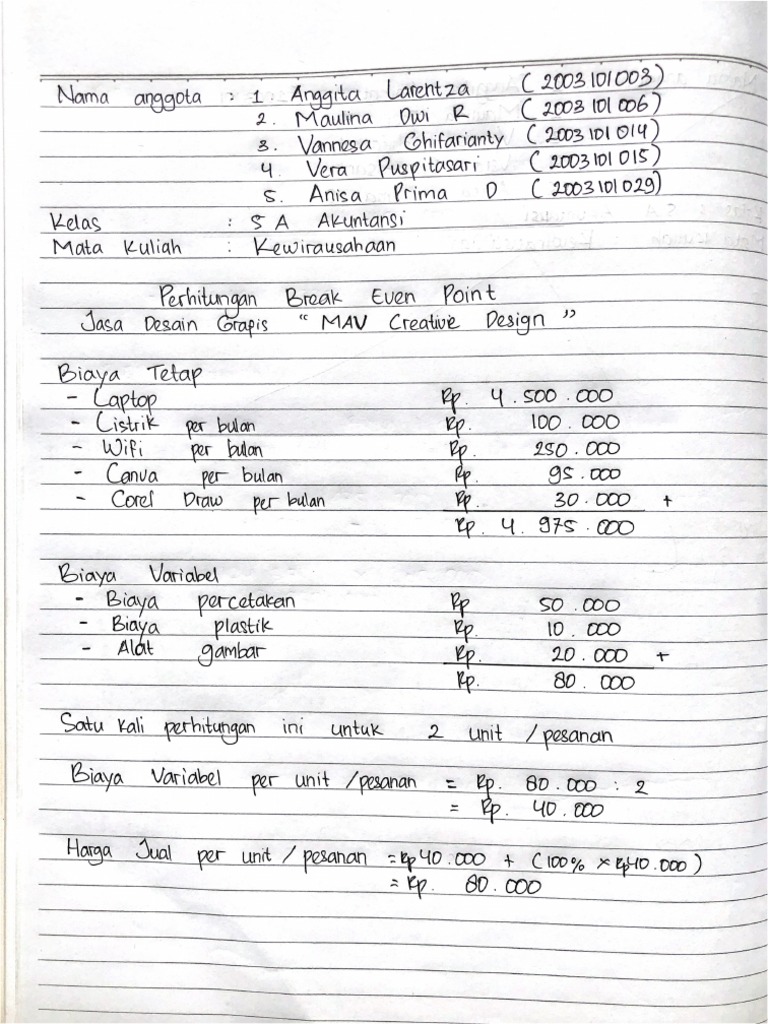 Nama anggota : 1. Anggita Larentza (2003101003)
2. Maulina Dwi R (2003101006)
3. Vannesa Ghifarianty (2003101014)
4. Vera Puspitasari (2003101015)
5. Anisa Prima D (2003101029)
Kelas : 5 A Akuntansi
Mata Kuliah : Kewirausahaan
Perhitungan Break Even Point
Jasa Desain Grapis “ MAV Creative Design ”
Biaya Tetap
- Laptop Rp. 4.500.000
- Listrik per bulan Rp. 100.000
- Wifi per bulan Rp. 250.000
- Canva per bulan Rp. 95.000
- Corel Draw per bulan Rp. 30.000 +
Rp. 4.975.000
Biaya Variabel
- Biaya percetakan Rp 50.000
- Biaya plastik Rp. 10.000
- Alat gambar Rp. 20.000 +
Rp. 80.000
Satu kali perhitungan ini untuk 2 unit / pesanan
Biaya Variabel per unit / pesanan = Rp. 80.000 : 2
= Rp. 40.000
Harga Jual per unit / pesanan = Rp 40.000 + (100% x Rp 40.000)
= Rp. 80.000